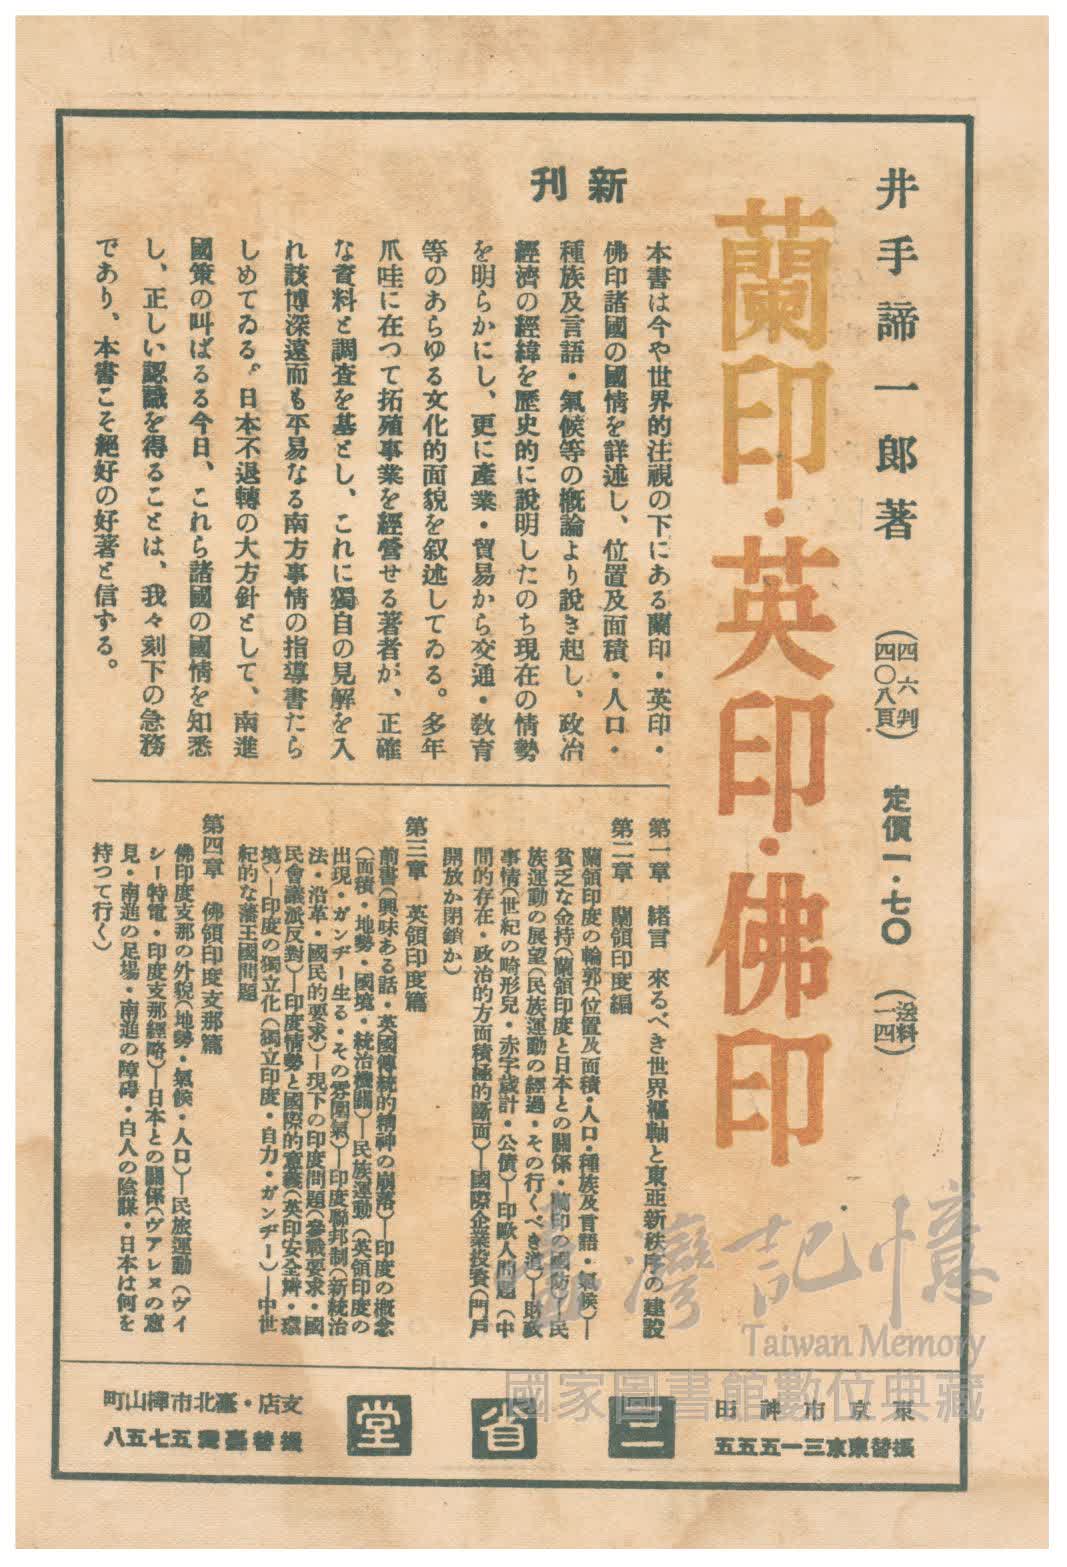 井手諦一郎著
(四六判
四〇八頁)
定價一・七〇
(送料
一四)
蘭印・英印・佛印
新刊
本書は今や世界的注視の下にある蘭印・英印・
佛印諸國の國情を詳述し、位置及面積・人口・
種族及言語・氣候等の概論より說き起し、政治
經濟の經緯を歷史的に說明したのち現在の情勢
を明らかにし、更に產業・貿易から交通・敎育
等のあらゆる文化的面貌を叙述してゐる。多年
爪哇に在つて拓殖事業を經營せる著者が、正確
な資料と調査を基とし、これに獨自の見解を入
れ該博深遠而も平易なる南方事情の指導書たら
しめてゐる。日本不退轉の大方針として、南進
國策の叫ばるる今日、これら諸國の國情を知悉
し、正しい認識を得ることは、我々刻下の急務
であり、本書こそ絕好の好著と信ずる。
第一章 緖言 來るべき世界樞軸と東亞新秩序の建設
第二章 蘭領印度編
蘭領印度の輪郭(位置及面積・人口・種族及言語・氣候)—
貧乏な金持(蘭領印度と日本との關係・蘭印の國防)—民
族運動の展望(民族運動の經過・その行くべき道)—財政
事情(世紀の畸形兒・赤字歲計・公債)—印歐人問題(中
間的存在・政治的方面積極的斷面)—國際企業投資(門戶
開放か閉鎖か)
第三章 英領印度篇
前書(興味ある話・英國傳統的精神の崩落)—印度の槪念
(面積・地勢・國境・統治機關)—民族運動(英領印度の
出現・ガンヂー生る・その雰圍氣)—印度聯邦制(新統治
法・沿革・國民的要求)—現下の印度問題(參戰要求・國
民會議派反對)—印度情勢と國際的意義(英印安全瓣・環
境)—印度の獨立化(獨立印度・自力・ガンヂー)—中世
紀的な藩王國問題
第四章 佛領印度支那篇
佛印度支那の外貌(地勢・氣候・人口)—民族運動(ヴイ
シー特電・印度支那經略)—日本との關係(ヴアレヌの意
見・南進の足場・南進の障碍・白人の陰謀・日本は何を
持つて行く)
東京市神田
振替東京三一五五五
三省堂
支店・臺北市樺山町
振替臺灣五七五八
臺灣記憶
Taiwan Memory
國家圖書館數位典藏